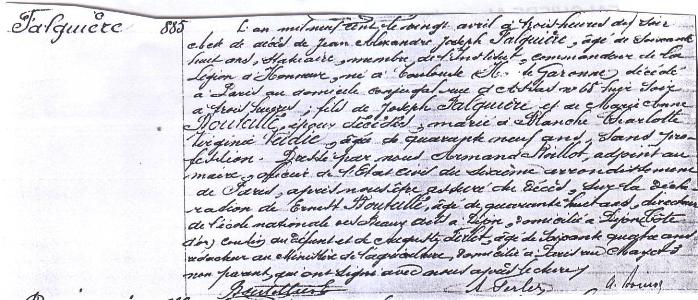 Falguière 885 L'an mil neuf cent, le vingt avril à trois heures du soir
acte de décès de Jean Alexandre Joseph Falguière, âgé de soixante
huit ans, statuaire, membre de l'Institut, commandeur de la
Légion d'Honneur, né à Toulouse (Hte Garonne) décédé
à Paris au domicile conjugal rue d'Assas n° 68
à trois heures ; fils de Joseph Falguière et de Marie Anne
Boutellé, époux décédés, marié à Blanche Charlotte
Virginie âgée de quarante neuf ans, sans pro
fession. Dressé par nous Armand adjoint au
maire, officier de l'Etat Civil du sixième arrondissement
de Paris, après nous être assuré du décès, sur la décla
ration de Ernest âgé de quarante huit ans, directeur
de l'école nationale des Beaux arts à Dijon, domicilié à Dijon (Côte
d'or) cousin du défunt et de Auguste âgé de soixante quatre ans,
rédacteur au Ministère de l'agriculture, domicilié à Paris
non parent, qui ont signé avec nous après lecture